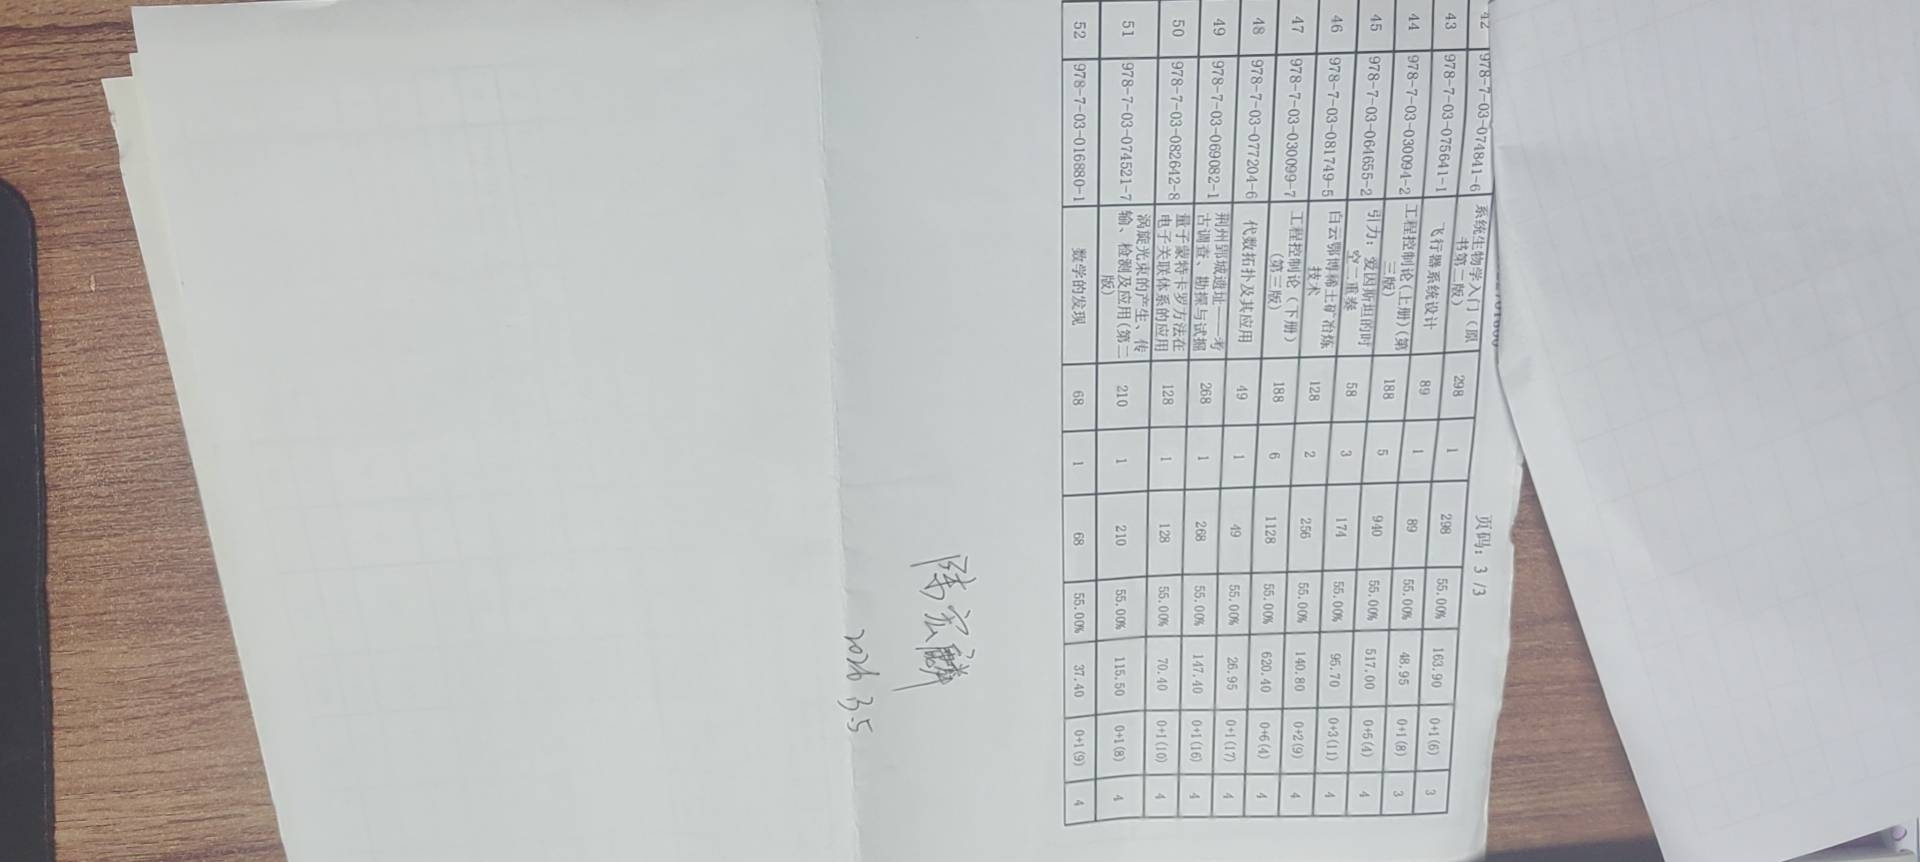 页码: 3 /3
42 978-7-03-074841-6 系统生物学入门（原 298 1 298 55.00% 163.90 0+1(6) 3
书第二版）
43 978-7-03-075641-1 飞行器系统设计 89 1 89 55.00% 48.95 0+1(8) 3
44 978-7-03-030094-2 工程控制论(上册)(第 188 5 940 55.00% 517.00 0+5(4) 4
三版)
45 978-7-03-064655-2 引力：爱因斯坦的时 58 3 174 55.00% 95.70 0+3(11) 4
空二重奏
46 978-7-03-081749-5 白云鄂博稀土矿冶炼 128 2 256 55.00% 140.80 0+2(9) 4
技术
47 978-7-03-030099-7 工程控制论（下册） 188 6 1128 55.00% 620.40 0+6(4) 4
（第三版）
48 978-7-03-077204-6 代数拓扑及其应用 49 1 49 55.00% 26.95 0+1(17) 4
49 978-7-03-069082-1 荆州郢城遗址——考 268 1 268 55.00% 147.40 0+1(16) 4
古调查、勘探与试掘
50 978-7-03-082642-8 量子蒙特卡罗方法在 128 1 128 55.00% 70.40 0+1(10) 4
电子关联体系的应用
51 978-7-03-074521-7 涡旋光束的产生、传 210 1 210 55.00% 115.50 0+1(8) 4
输、检测及应用(第二
版)
52 978-7-03-016880-1 数学的发现 68 1 68 55.00% 37.40 0+1(9) 4
陈宏麟
2026 3.5